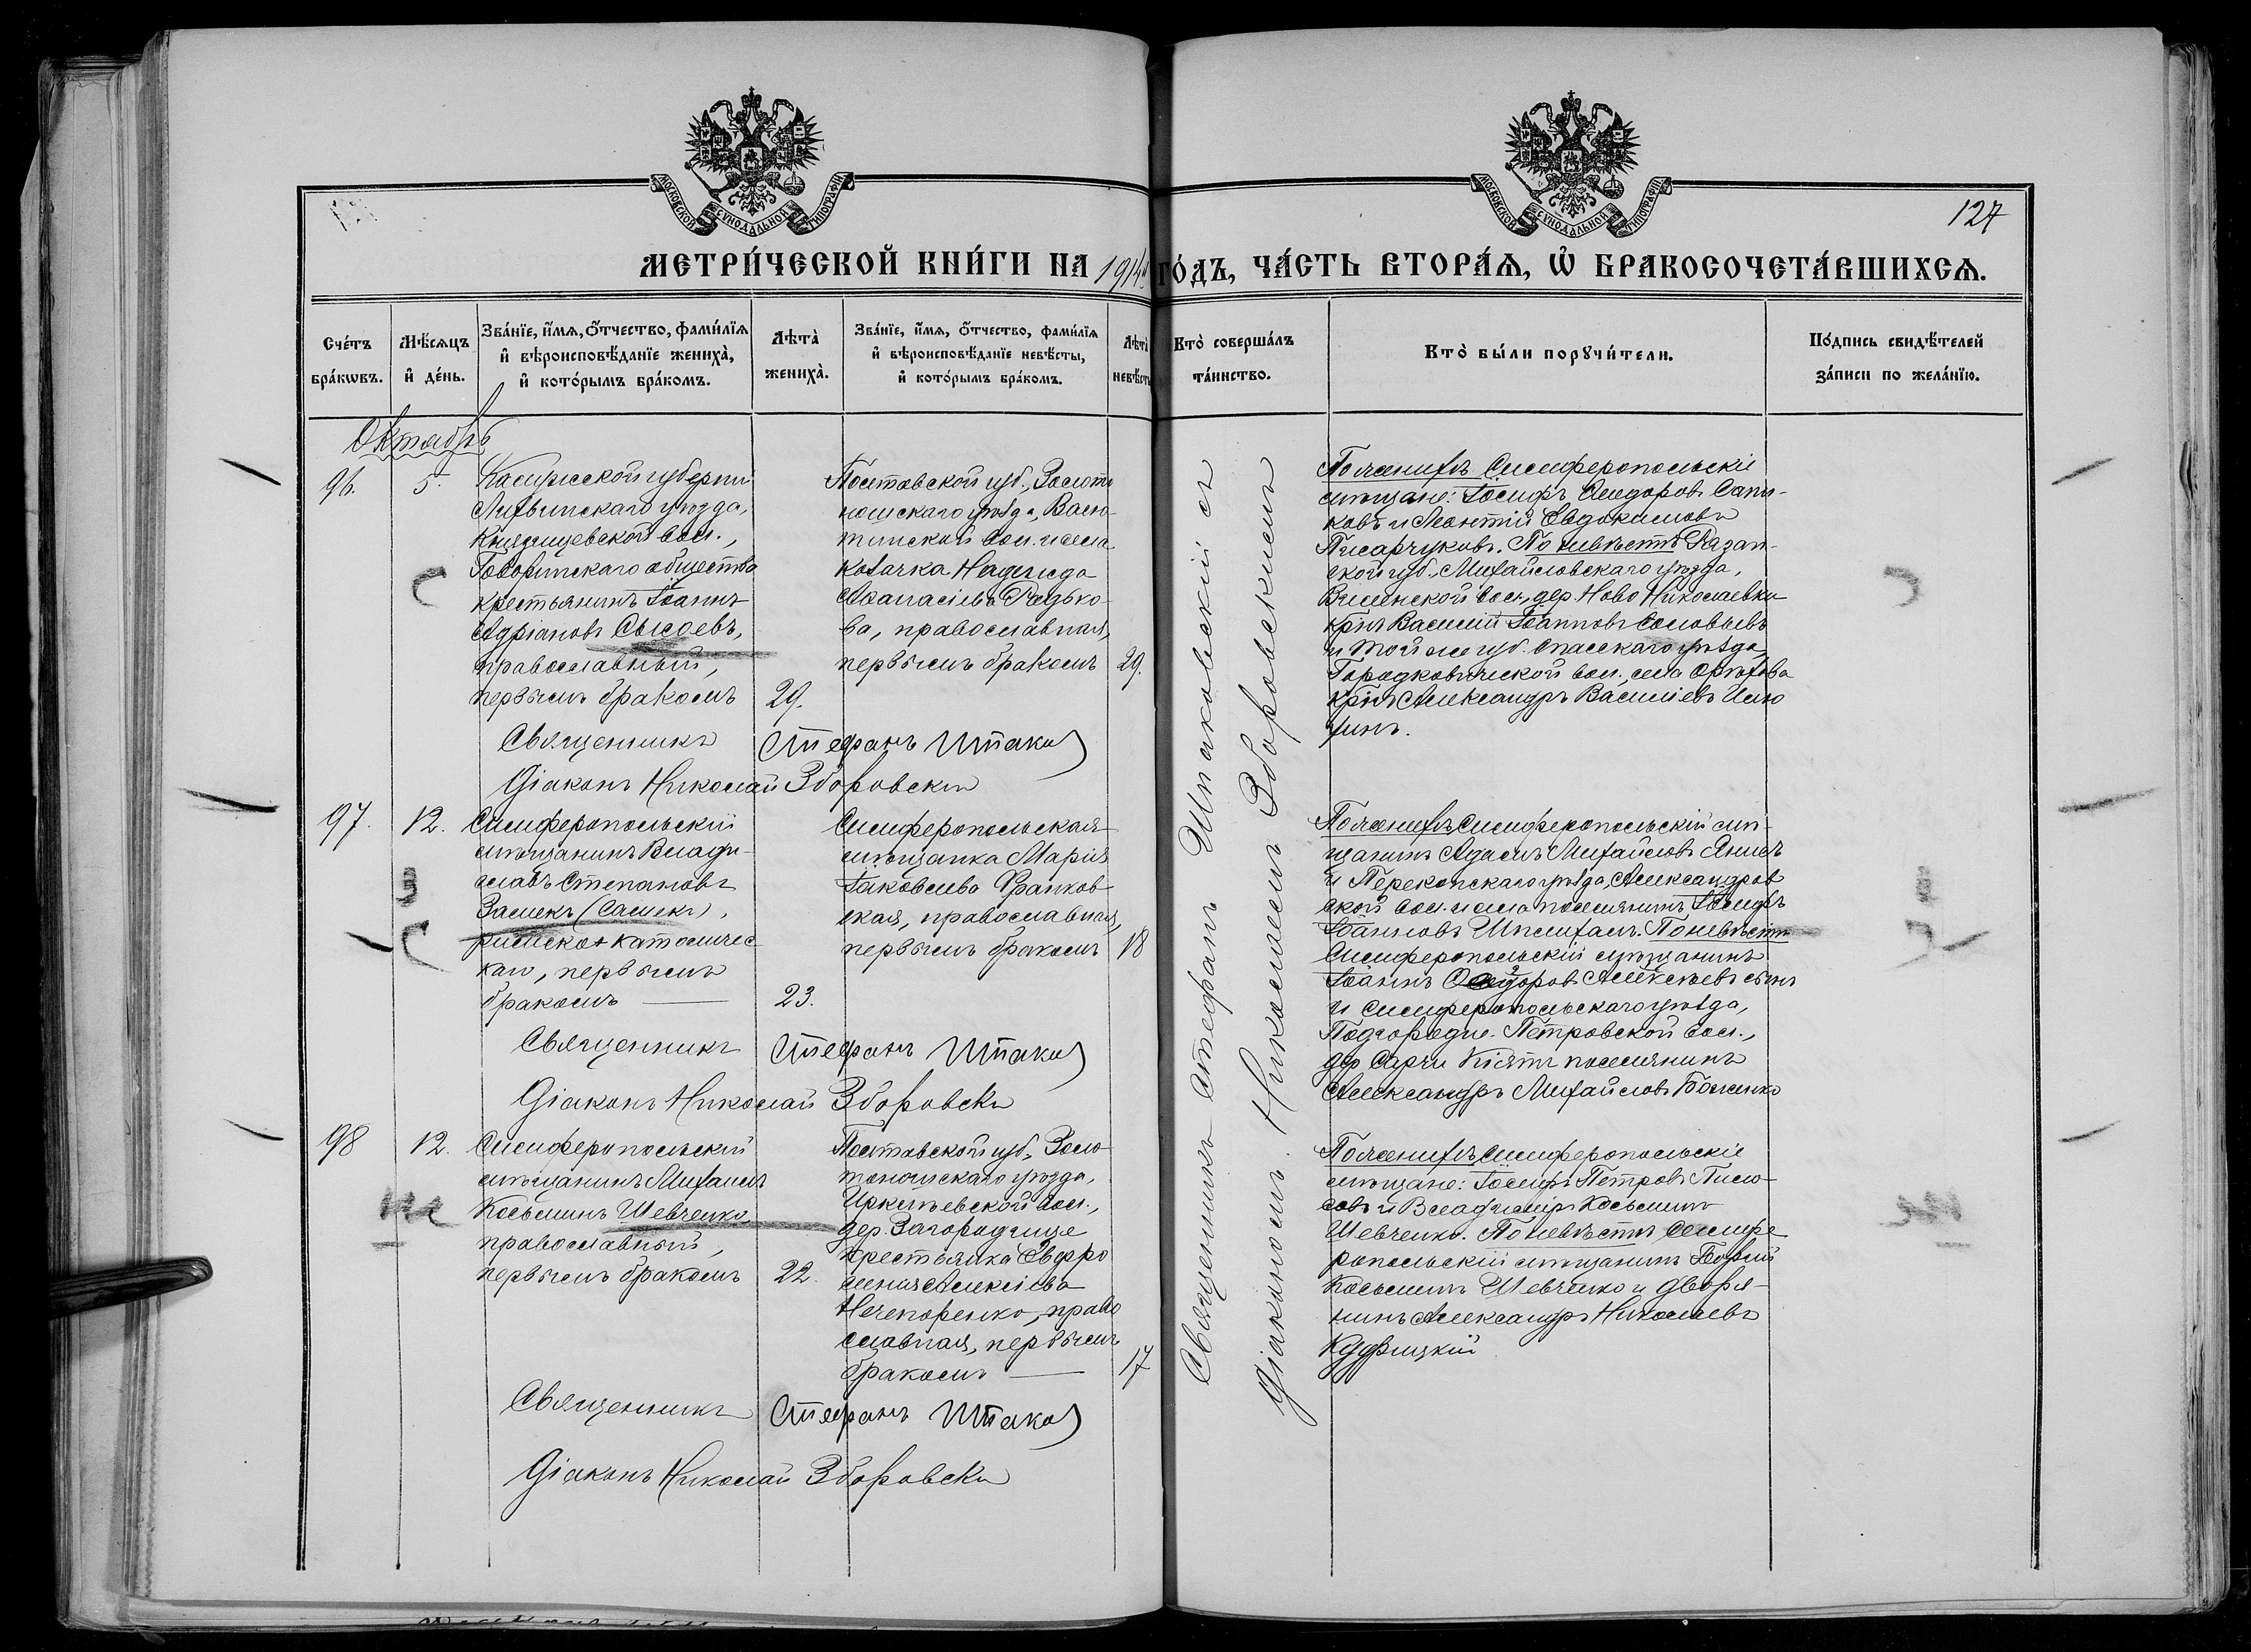 МОСКОВСКОЙ СѴНОДАЛЬНОЙ ТИПОГРАФІИ
МОСКОВСКОЙ СѴНОДАЛЬНОЙ ТИПОГРАФІИ
127
МЕТРИ́ЧЕСКОЙ КНИ́ГИ НА 1914й ГО́ДЪ, ЧА́СТЬ ВТОРА́Я, Ѡ БРАКОСОЧЕТА́ВШИХСЯ.
Сче́тъ бра́кѡвъ.
Мѣ́сяцъ и҆ де́нь.
Зва́нїе, и҆́мѧ, ѻ҆́тчество, фами́лїѧ
и҆ вѣроисповѣ́данїе жениха̀,
и҆ кото́рымъ бра́комъ.
Лѣта̀ жениха̀.
Зва́нїе, и҆́мѧ, ѻ҆́тчество, фами́лїѧ
и҆ вѣроисповѣ́данїе невѣ́сты,
и҆ кото́рымъ бра́комъ.
Лѣта̀ невѣ́сты
Кто̀ соверша́лъ
та́инство.
Кто̀ бы́ли порꙋчи́тели.
По́дпись свидѣ́телей
за́писи по жела́нїю.
Октябрь
96.
5.
Калужской губерніи
Лихвинскаго уѣзда,
вол.,
Говоринскаго общества
крестьянинъ Іоаннъ
Адріановъ Сысоевъ,
православный,
первымъ бракомъ
29.
Полтавской губ., Золото
ношскаго уѣзда, Васю-
тинской вол. и села
козачка Надежда
Аѳанасіева Радько-
ва, православная,
первымъ бракомъ
29.
По женихѣ Симферопольскіе
мѣщане: Іосифъ Ѳеодоровъ Сапи-
ковъ и Леонтій Евдокимовъ
Писарчуковъ. По невѣстѣ Рязан-
ской губ., Михайловскаго уѣзда,
вол., дер. Ново Николаевки
крнъ Василій Іоанновъ Соловьевъ
и той же губ. Спасскаго уѣзда,
Городковической вол., села Орѣхова
крнъ Александръ Василіевъ Илю
хинъ.
Священникъ Стефанъ Шпаков
Діаконъ Николай Зборовски
97.
12.
Симферопольскій
мѣщанинъ Влади-
славъ Степановъ
Замекъ (Самекъ),
римско-католичес
каго, первымъ
бракомъ —
23.
Симферопольская
мѣщанка Марія
Іаковлева Франков-
ская, православная,
первымъ бракомъ
18
По женихѣ Симферопольскій мѣ-
щанинъ Адамъ Михайловъ
и Перекопскаго уѣзда, Александров
ской вол. и села поселянинъ Іосифъ
Іоанновъ. По невѣстѣ
Симферопольскій мѣщанинъ
Іоаннъ Ѳеодоровъ Алексѣевъ сынъ
и Симферопольскаго уѣзда,
Подгородне-Петровской вол.,
дер Сарчи Кіятъ поселянинъ
Александръ Михайловъ Боженко
Священникъ Стефанъ Шпаков
Діаконъ Николай Зборовски
98
12.
Симферопольскій
мѣщанинъ Михаилъ
Косьминъ Шевченко,
православный,
первымъ бракомъ
22.
Полтавской губ., Золо-
тоношскаго уѣзда,
Ирклѣевской вол.,
дер. Загородище
крестьянка Евфро
синія Алексіева
Нечепоренко, право
славная, первымъ
бракомъ —
17
По женихѣ Симферопольскіе
мѣщане: Іосифъ Петровъ
и Владиміръ Косьминъ
Шевченко. По невѣстѣ Симфе
ропольскій мѣщанинъ
Косьминъ Шевченко и дворя-
нинъ Александръ Николаевъ
Священникъ Стефанъ Шпаков
Діаконъ Николай Зборовски
Священникъ Стефанъ Шпаковскій съ
діакономъ Николаемъ Зборовскимъ